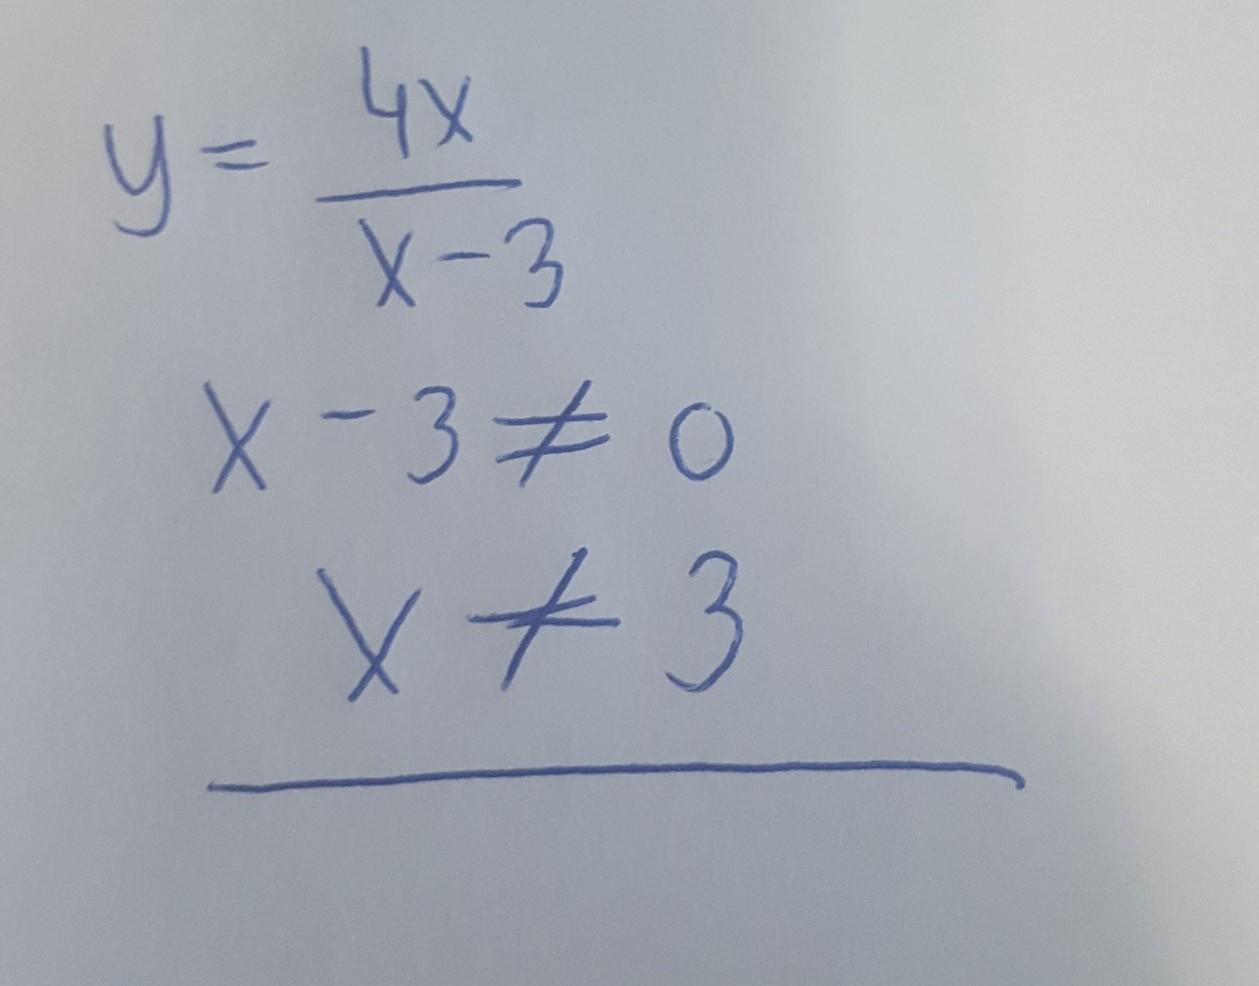 y = 4x / x - 3
x - 3 ≠ 0
x ≠ 3